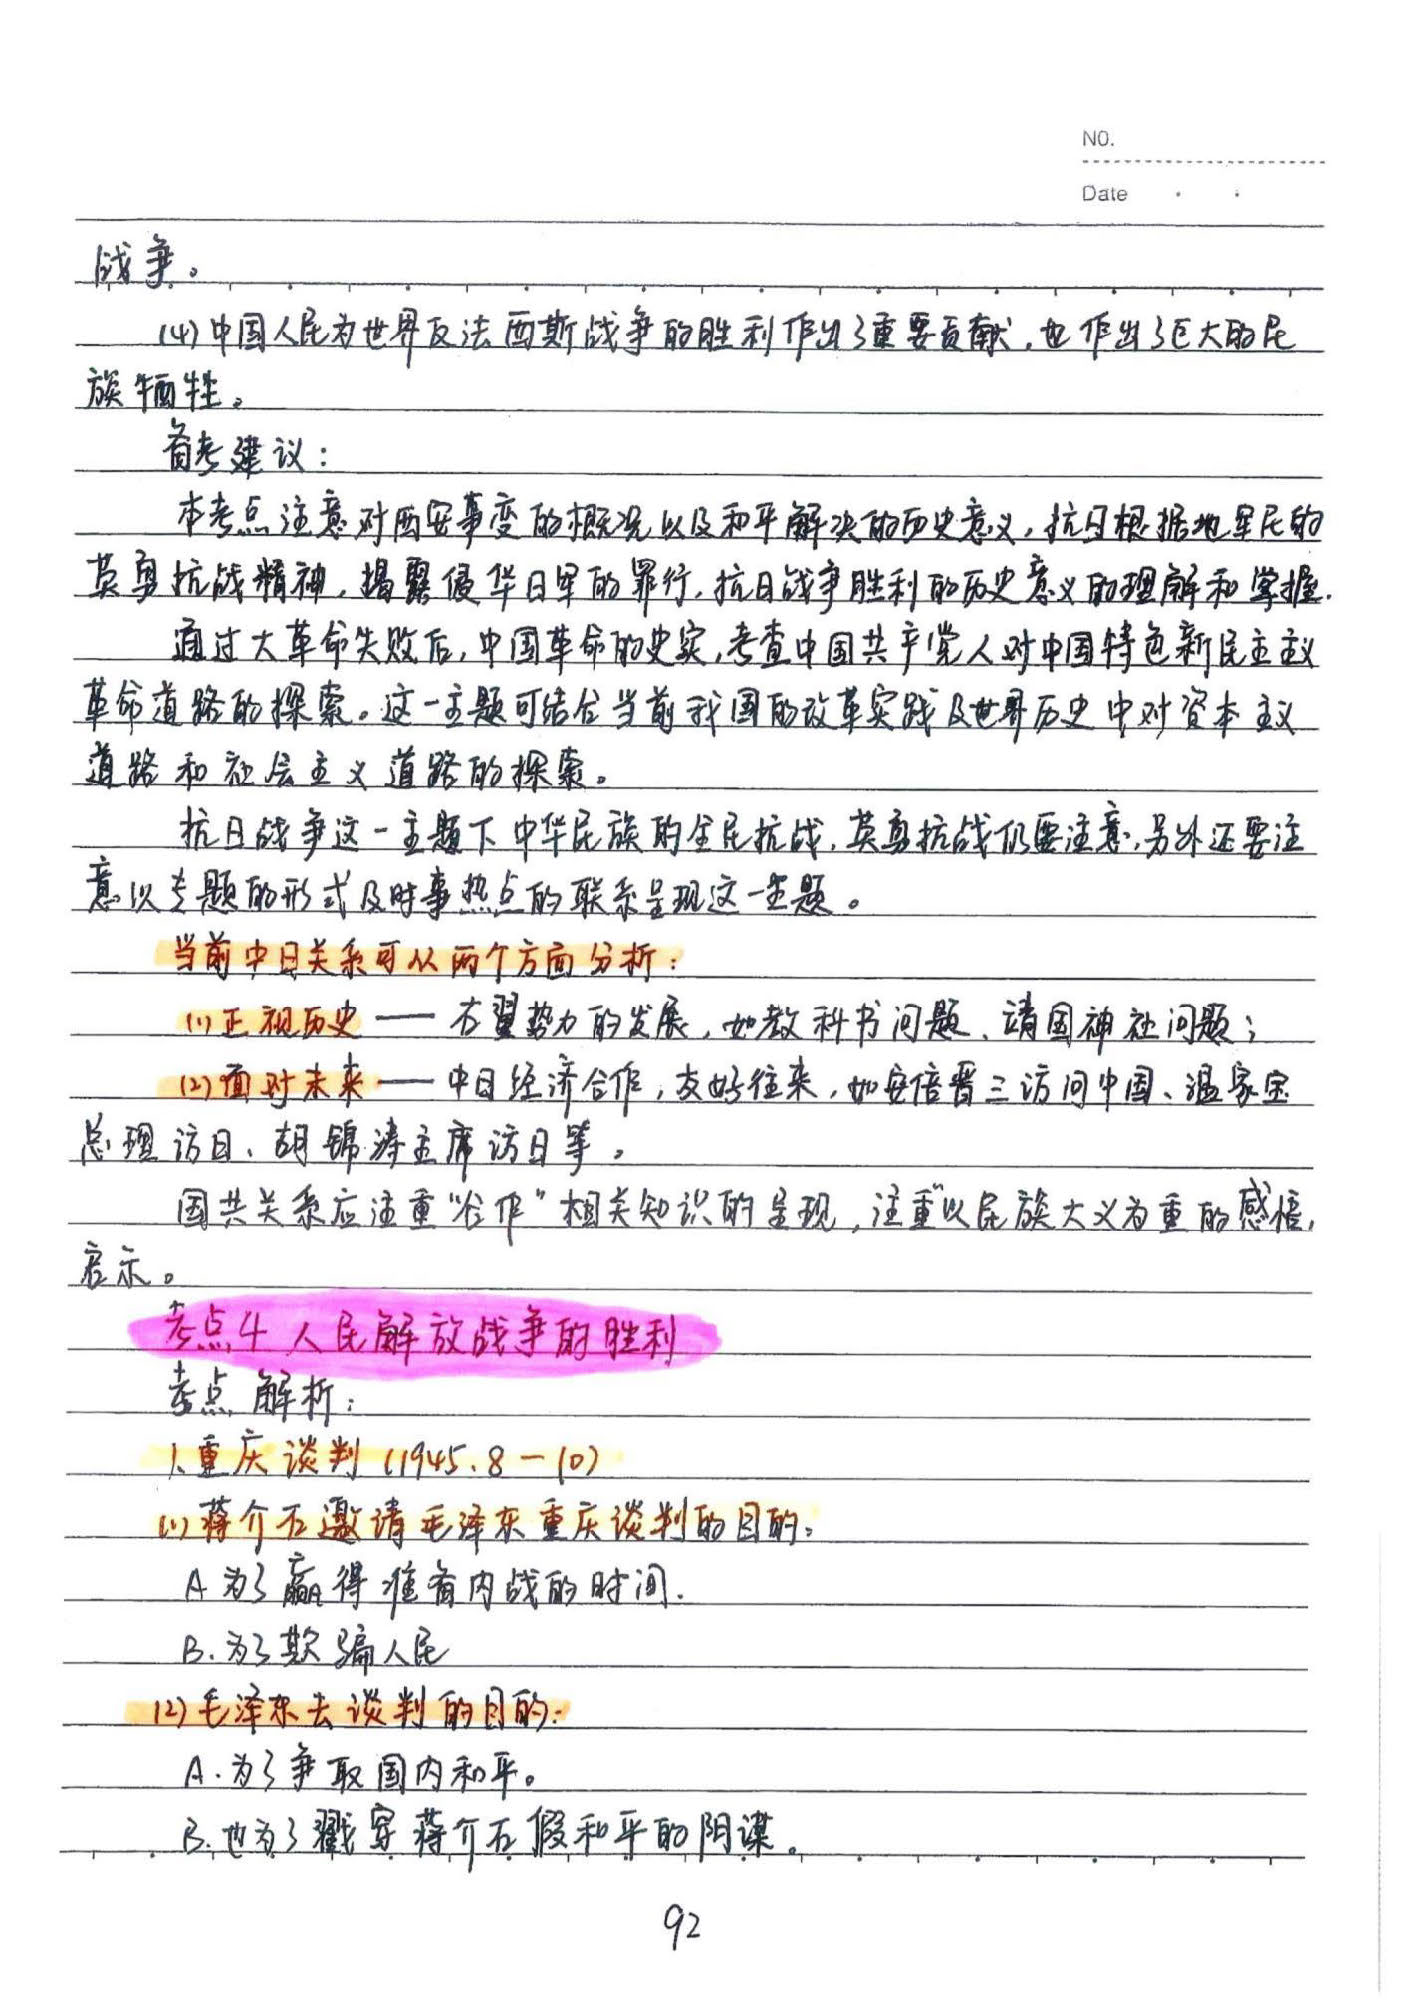 NO.
Date
战争。
(4)中国人民为世界反法西斯战争的胜利作出了重要贡献，也作出了巨大的民
族牺牲。
备考建议：
本考点注意对西安事变的概况以及和平解决的历史意义，抗日根据地军民的
英勇抗战精神，揭露侵华日军的罪行，抗日战争胜利的历史意义的理解和掌握.
通过大革命失败后，中国革命的史实，考查中国共产党人对中国特色新民主主义
革命道路的探索。这一主题可结合当前我国的改革实践及世界历史中对资本主义
道路和社会主义道路的探索。
抗日战争这一主题下中华民族的全民抗战，英勇抗战仍要注意，另外还要注
意以专题的形式及时事热点的联系呈现这一主题。
当前中日关系可从两个方面分析：
(1)正视历史——右翼势力的发展，如教科书问题、靖国神社问题；
(2)面对未来——中日经济合作，友好往来，如安倍晋三访问中国、温家宝
总理访日、胡锦涛主席访日等。
国共关系应注重“合作”相关知识的呈现，注重“以民族大义为重的感悟，
启示。
考点4 人民解放战争的胜利
考点解析：
1、重庆谈判(1945.8—10)
(1)蒋介石邀请毛泽东重庆谈判的目的：
A 为了赢得准备内战的时间.
B.为了欺骗人民
(2)毛泽东去谈判的目的：
A.为了争取国内和平。
B.也为了戳穿蒋介石假和平的阴谋。
92